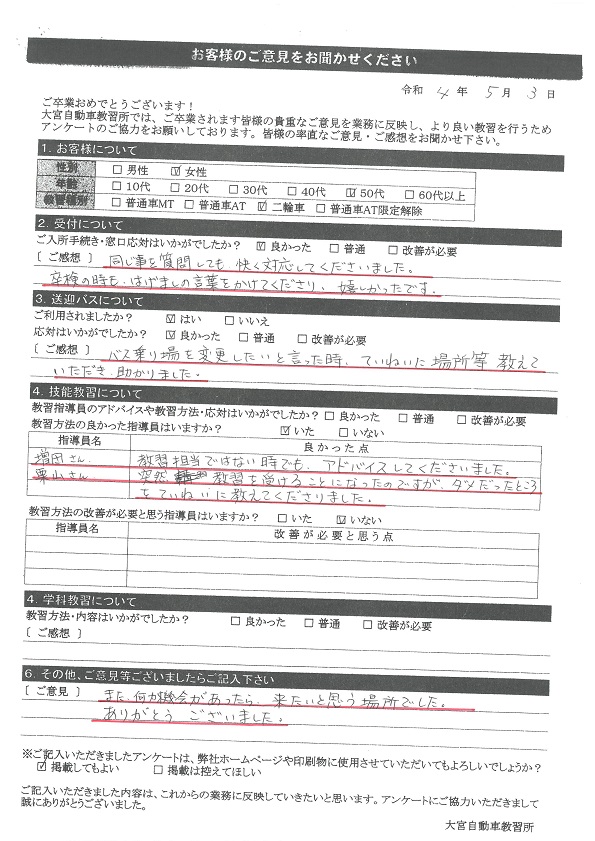 お客様のご意見をお聞かせください
令和 4 年 5 月 3 日
ご卒業おめでとうございます！
大宮自動車教習所では、ご卒業されます皆様の貴重なご意見を業務に反映し、より良い教習を行うため
アンケートのご協力をお願いしております。皆様の率直なご意見・ご感想をお聞かせ下さい。
1. お客様について
性別 □ 男性 ☑ 女性
年齢 □ 10代 □ 20代 □ 30代 □ 40代 ☑ 50代 □ 60代以上
教習種別 □ 普通車MT □ 普通車AT ☑ 二輪車 □ 普通車AT限定解除
2. 受付について
ご入所手続き・窓口応対はいかがでしたか？ ☑ 良かった □ 普通 □ 改善が必要
［ ご感想 ］ 同じ事を質問しても 快く対応してくださいました。
卒検の時も、はげましの言葉をかけてくださり、嬉しかったです。
3. 送迎バスについて
ご利用されましたか？ ☑ はい □ いいえ
応対はいかがでしたか？ ☑ 良かった □ 普通 □ 改善が必要
［ ご感想 ］ バス乗り場を変更したいと言った時、ていねいに場所等 教えて
いただき、助かりました。
4. 技能教習について
教習指導員のアドバイスや教習方法・応対はいかがでしたか？ □ 良かった □ 普通 □ 改善が必要
教習方法の良かった指導員はいますか？ ☑ いた □ いない
指導員名 良かった点
増田さん 教習担当ではない時でも、アドバイスしてくださいました。
栗山さん 突然 教習を受けることになったのですが、ダメだったところ
をていねいに教えてくださりました。
教習方法の改善が必要と思う指導員はいますか？ □ いた ☑ いない
指導員名 改善が必要と思う点
4. 学科教習について
教習方法・内容はいかがでしたか？ □ 良かった □ 普通 □ 改善が必要
［ ご感想 ］
6. その他、ご意見等ございましたらご記入下さい
［ ご意見 ］ また、何か機会があったら、来たいと思う場所でした。
ありがとう ございました。
※ご記入いただきましたアンケートは、弊社ホームページや印刷物に使用させていただいてもよろしいでしょうか？
☑ 掲載してもよい □ 掲載は控えてほしい
ご記入いただきました内容は、これからの業務に反映していきたいと思います。アンケートにご協力いただきまして
誠にありがとうございました。
大宮自動車教習所